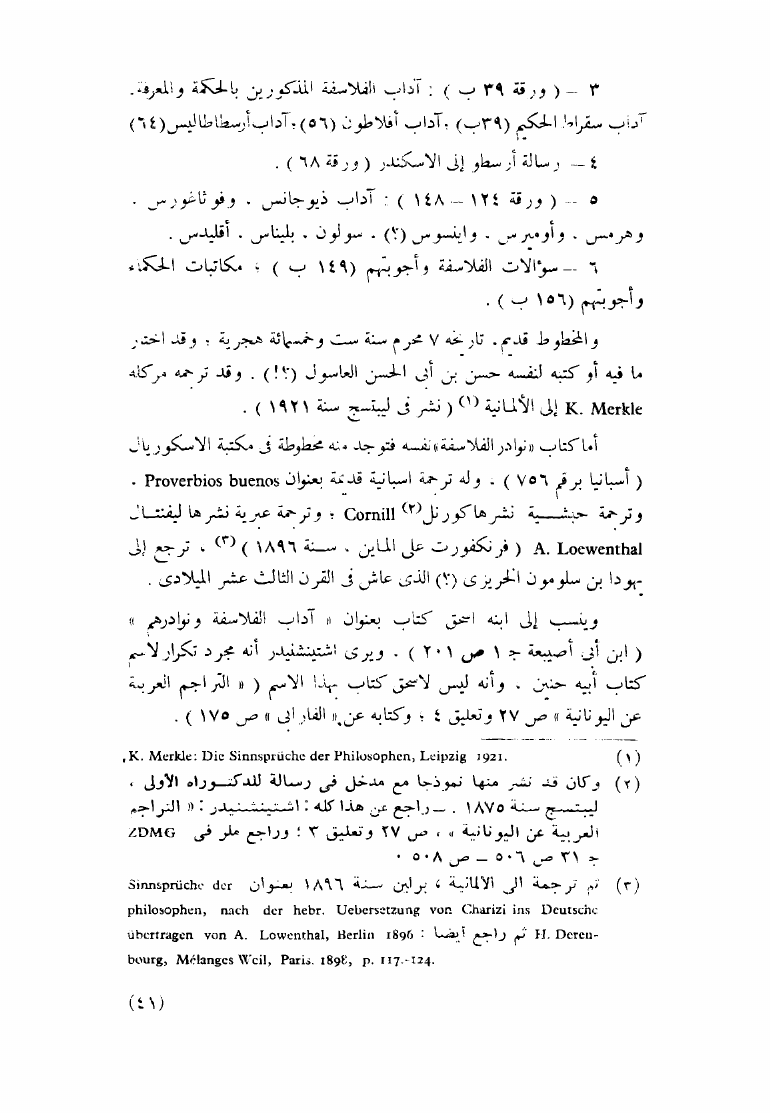 ٣ – ( ورقة ٣٩ ب ) : آداب الفلاسفة المذكورين بالحكمة والمعرفة.
آداب سقراط الحكيم (٣٩ب)؛ آداب أفلاطون (٥٦)؛ آداب أرسطاطاليس (٦٤)
٤ – رسالة أرسطو إلى الاسكندر ( ورقة ٦٨ ) .
٥ – ( ورقة ١٢٤ – ١٤٨ ) : آداب ذيوجانس . وفوثاغورس .
وهرمس . وأوميرس . واينسوس (؟) . سولون . بليناس . أقليدس .
٦ – سؤالات الفلاسفة وأجوبتهم (١٤٩ ب ) ؛ مكاتبات الحكماء
وأجوبتهم (١٥٦ ب ) .
والمخطوط قديم . تاريخه ٧ محرم سنة ست وخمسمائة هجرية ؛ وقد اختار
ما فيه أو كتبه لنفسه حسن بن أبى الحسن العاسول (؟!) . وقد ترجمه مركله
K. Merkle إلى الألمانية (١) ( نشر في ليبتسج سنة ١٩٢١ ) .
أما كتاب «نوادر الفلاسفة» نفسه فتوجد منه مخطوطة في مكتبة الاسكوريال
( أسبانيا برقم ٧٥٦ ) . وله ترجمة اسبانية قديمة بعنوان Proverbios buenos .
وترجمة حبشية نشرها كورنل (٢) Cornill ؛ وترجمة عبرية نشرها ليفنتال
A. Loewenthal ( فرنكفورت على الماين . سنة ١٨٩٦ ) (٣) . ترجع إلى
يهودا بن سلومون الحريزى (؟) الذى عاش في القرن الثالث عشر الميلادى .
وينسب إلى ابنه اسحق كتاب بعنوان « آداب الفلاسفة ونوادرهم »
( ابن أبى أصيبعة ج ١ ص ٢٠١ ) . ويرى اشتينشنيدر أنه مجرد تكرار لاسم
كتاب أبيه حنين . وأنه ليس لاسحق كتاب بهذا الاسم ( « التراجم العربية
عن اليونانية » ص ٢٧ وتعليق ٤ ؛ وكتابه عن «الفارابى » ص ١٧٥ ) .
(١) K. Merkle: Die Sinnsprüche der Philosophen, Leipzig 1921.
(٢) وكان قد نشر منها نموذجا مع مدخل فى رسالة للدكتوراه الأولى ،
ليبتسج سنة ١٨٧٥ . – راجع عن هذا كله : اشتينشنيدر : « التراجم
العربية عن اليونانية » ، ص ٢٧ وتعليق ٣ ؛ وراجع ملر فى ZDMG
ج ٣١ ص ٥٠٦ – ص ٥٠٨ .
(٣) ثم ترجمة الى الالمانية ، برلين سنة ١٨٩٦ بعنوان Sinnsprüche der
philosophen, nach der hebr. Uebersetzung von Charizi ins Deutsche
übertragen von A. Lowenthal, Berlin 1896 : ثم راجع أيضا H. Deren-
bourg, Mélanges Weil, Paris. 1898, p. 117.-124.
(٤١)